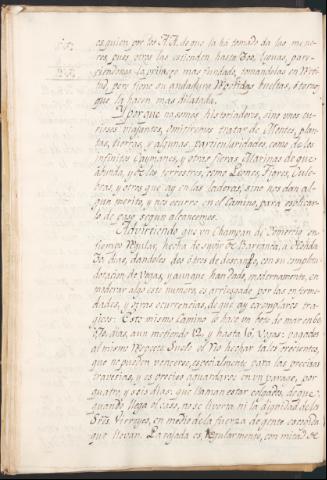 es quien por los A.A. de que la há tomado da las meno-
res, pues otros las estienden hasta 300, leguas, pare-
ciendonos la primera mas fundada, tomandolas en
pero tiene su andadura bueltas, ó tornos
que la hacen mas dilatada.
Y por que no somos historiadores, sino unos cu-
riosos viajantes, omitiremos tratar de Montes, plan-
tas, tierras, y algunas particularidades, como de los
infinitos Caymanes, y otras fieras Marinas de que
abunda, y de las terrestres, como Leones, Tigres, Cule-
bras, y otros que ay en las laderas, sino nos dan al-
gun merito, y nos ocurre en el Camino, para esplicar-
lo de paso segun alcancemos.
Advirtiendo que un Champan de Comercio en
tiempo Regular, hecha de subir de Barranca, á Honda
30, dias, dandoles dos ó tres de descanso, con su completa
dotacion de Vogas, y aunque han dado, modernamente, en
moderar algo este numero, es arriesgado por las enferme-
dades, y otras ocurrencias, de que ay exemplares tra-
gicos: Este mismo Camino lo hace un bote de
dias, aun metiendo 12, y hasta 16, Vogas: pagados
al mismo Respecto Suele el Rio hechar tales crecientes,
que no pueden vencerse, especialmente para las precisas
travesias, y es preciso aguardarse en un parage, por
quatro, y seis dias, que llaman estar colgados, de que
quando llega el caso, no se liverta ni la dignidad de los
Srēs Virreyes, en medio de la fuerza de gente escogida
que llevan. La rajada es, Regularmente, con mitad de